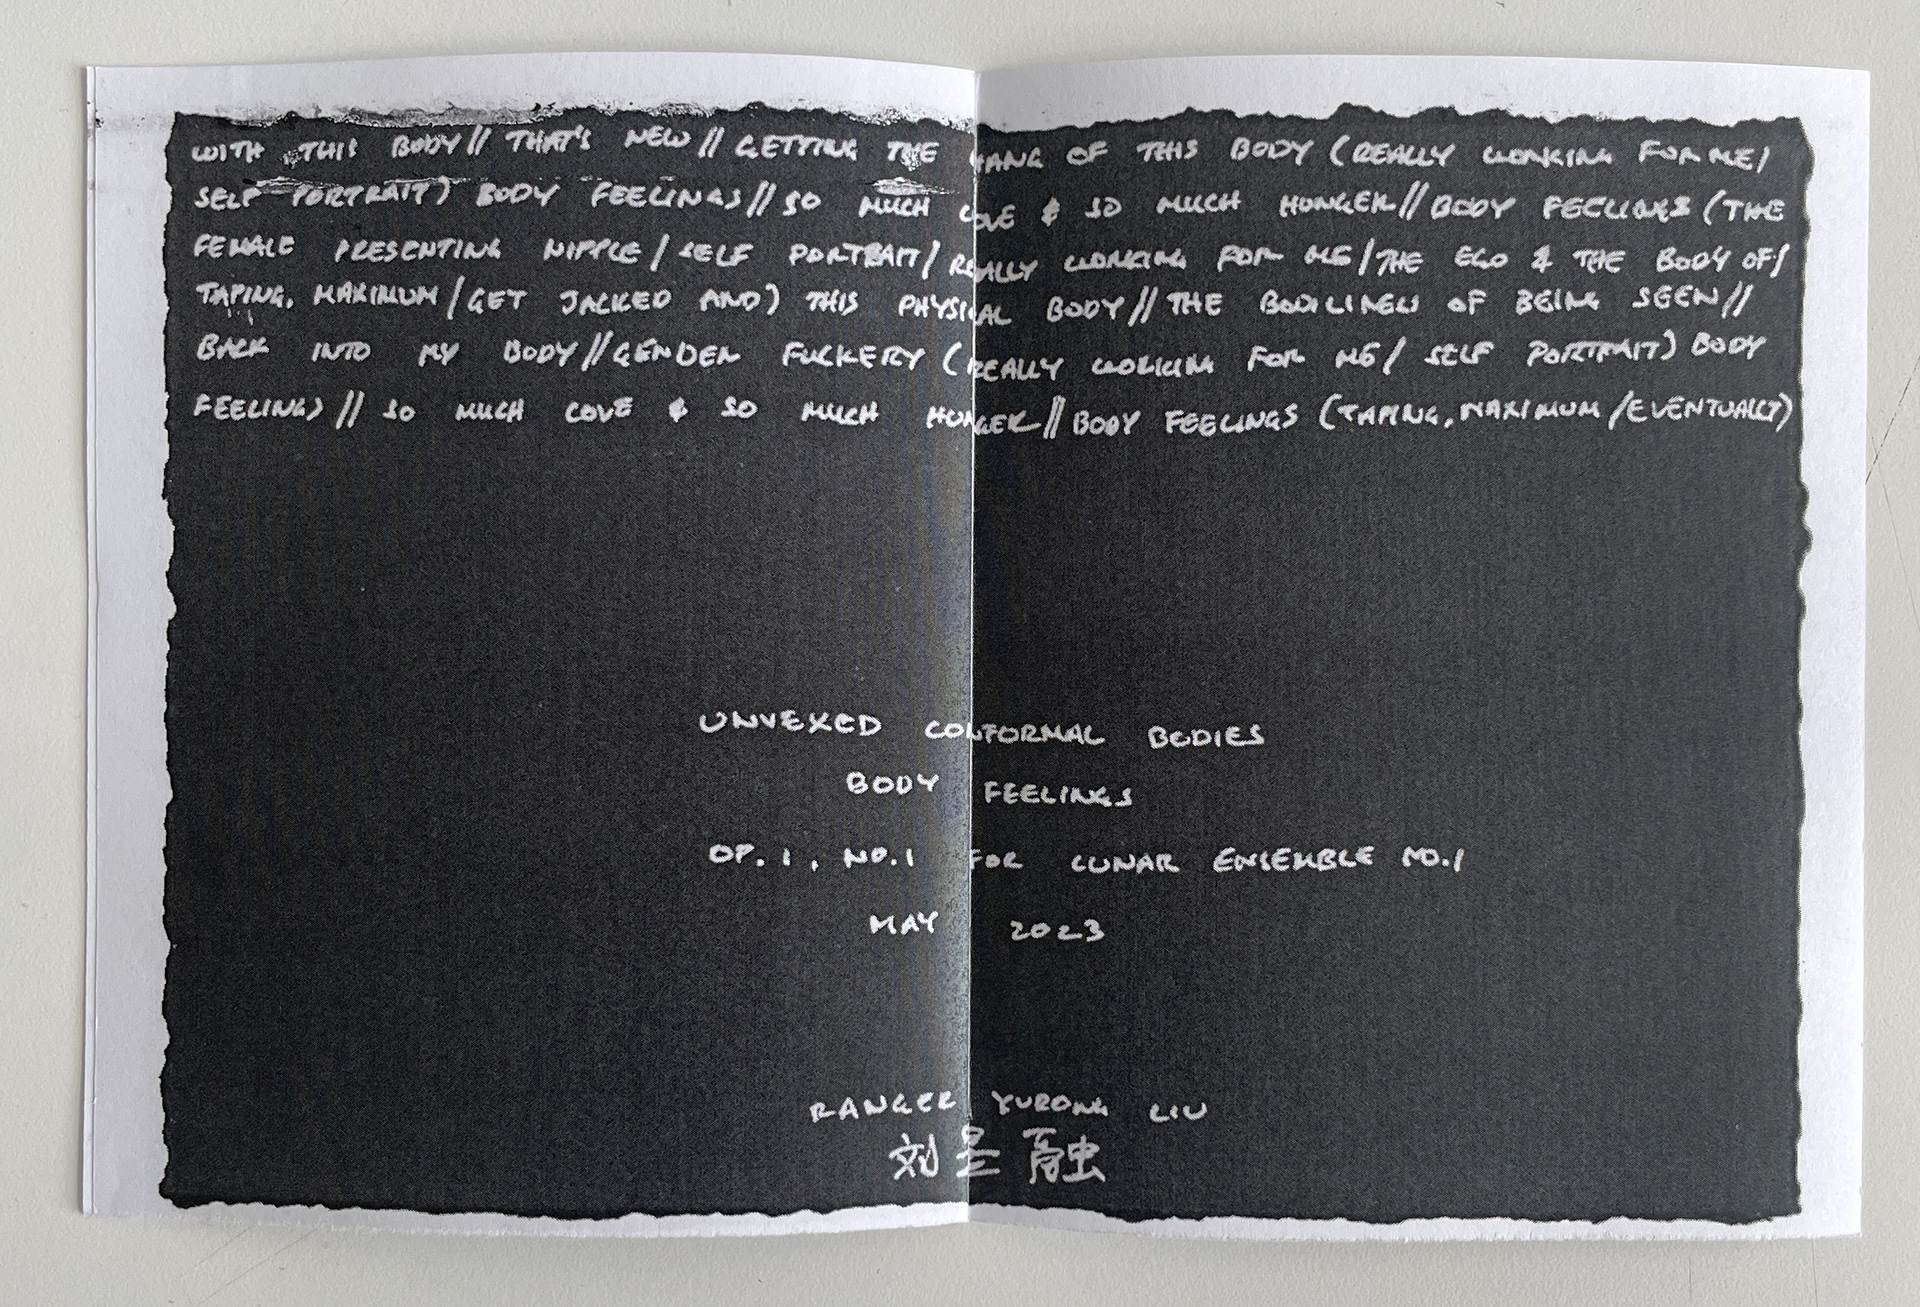 WITH THIS BODY// THAT'S NEW// GETTING THE HANG OF THIS BODY (REALLY WORKING FOR ME/
SELF PORTRAIT) BODY FEELINGS// SO MUCH LOVE & SO MUCH HUNGER// BODY FEELINGS (THE
FEMALE PRESENTING NIPPLE/ SELF PORTRAIT/ REALLY WORKING FOR ME/ THE EGO & THE BODY OF/
TAPING, MAXIMUM/ GET JACKED AND) THIS PHYSICAL BODY// THE BODILINESS OF BEING SEEN//
BACK INTO MY BODY// GENDER FUCKERY (REALLY WORKING FOR ME/ SELF PORTRAIT) BODY
FEELINGS// SO MUCH LOVE & SO MUCH HUNGER// BODY FEELINGS (TAPING, MAXIMUM/EVENTUALLY)
UNVEXED CONFORMAL BODIES
BODY FEELINGS
OP. 1, NO. 1 FOR LUNAR ENSEMBLE NO. 1
MAY 2023
RANGER YURONG LIU
刘昱融